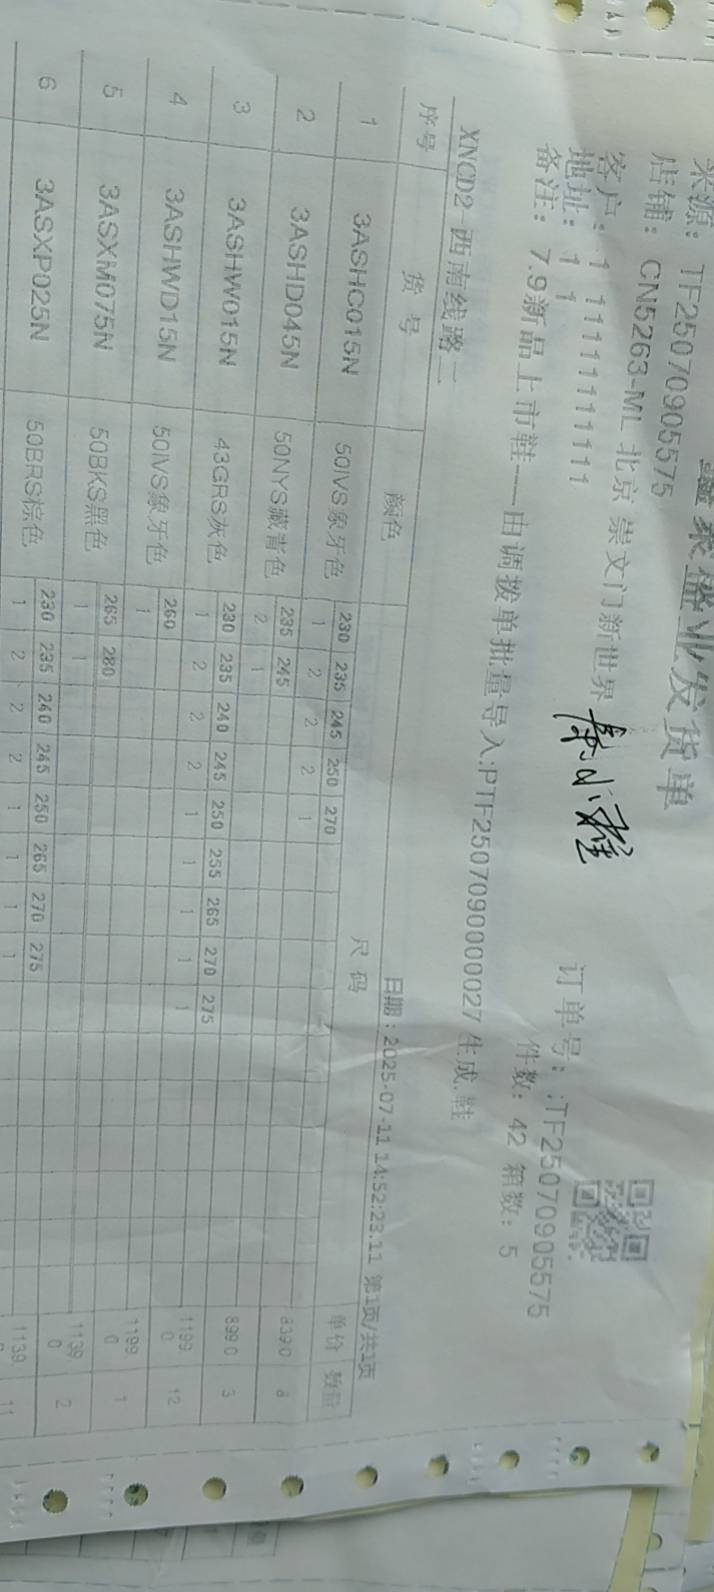 鑫泰盛业发货单
来源: TF25070905575
店铺: CN5263-ML 北京 崇文门新世界 订单号: :TF25070905575
客户: 1 11111111111 件数: 42 箱数: 5
地址: 1 1
备注: 7.9新品上市鞋---由调拨单批量导入:PTF2507090000027 生成.鞋
XNCD2 西南线路二 日期: 2025-07-11 14:52:23.11 第1页/共1页
序号 货号 颜色 尺码 单价 数量
1 3ASHC015N 50IVS象牙色 230 235 245 250 270 839.0 8
1 2 2 2 1
2 3ASHD045N 50NYS藏青色 235 245 899.0 3
2 1
3 3ASHW015N 43GRS灰色 230 235 240 245 250 255 265 270 275 1199.0 12
1 2 2 2 1 1 1 1 1
4 3ASHWD15N 50IVS象牙色 260 1199.0 1
1
5 3ASXM075N 50BKS黑色 265 280 1139.0 2
1 1
6 3ASXP025N 50BRS棕色 230 235 240 245 250 265 270 275 1139. 11
1 2 2 2 1 1 1 1